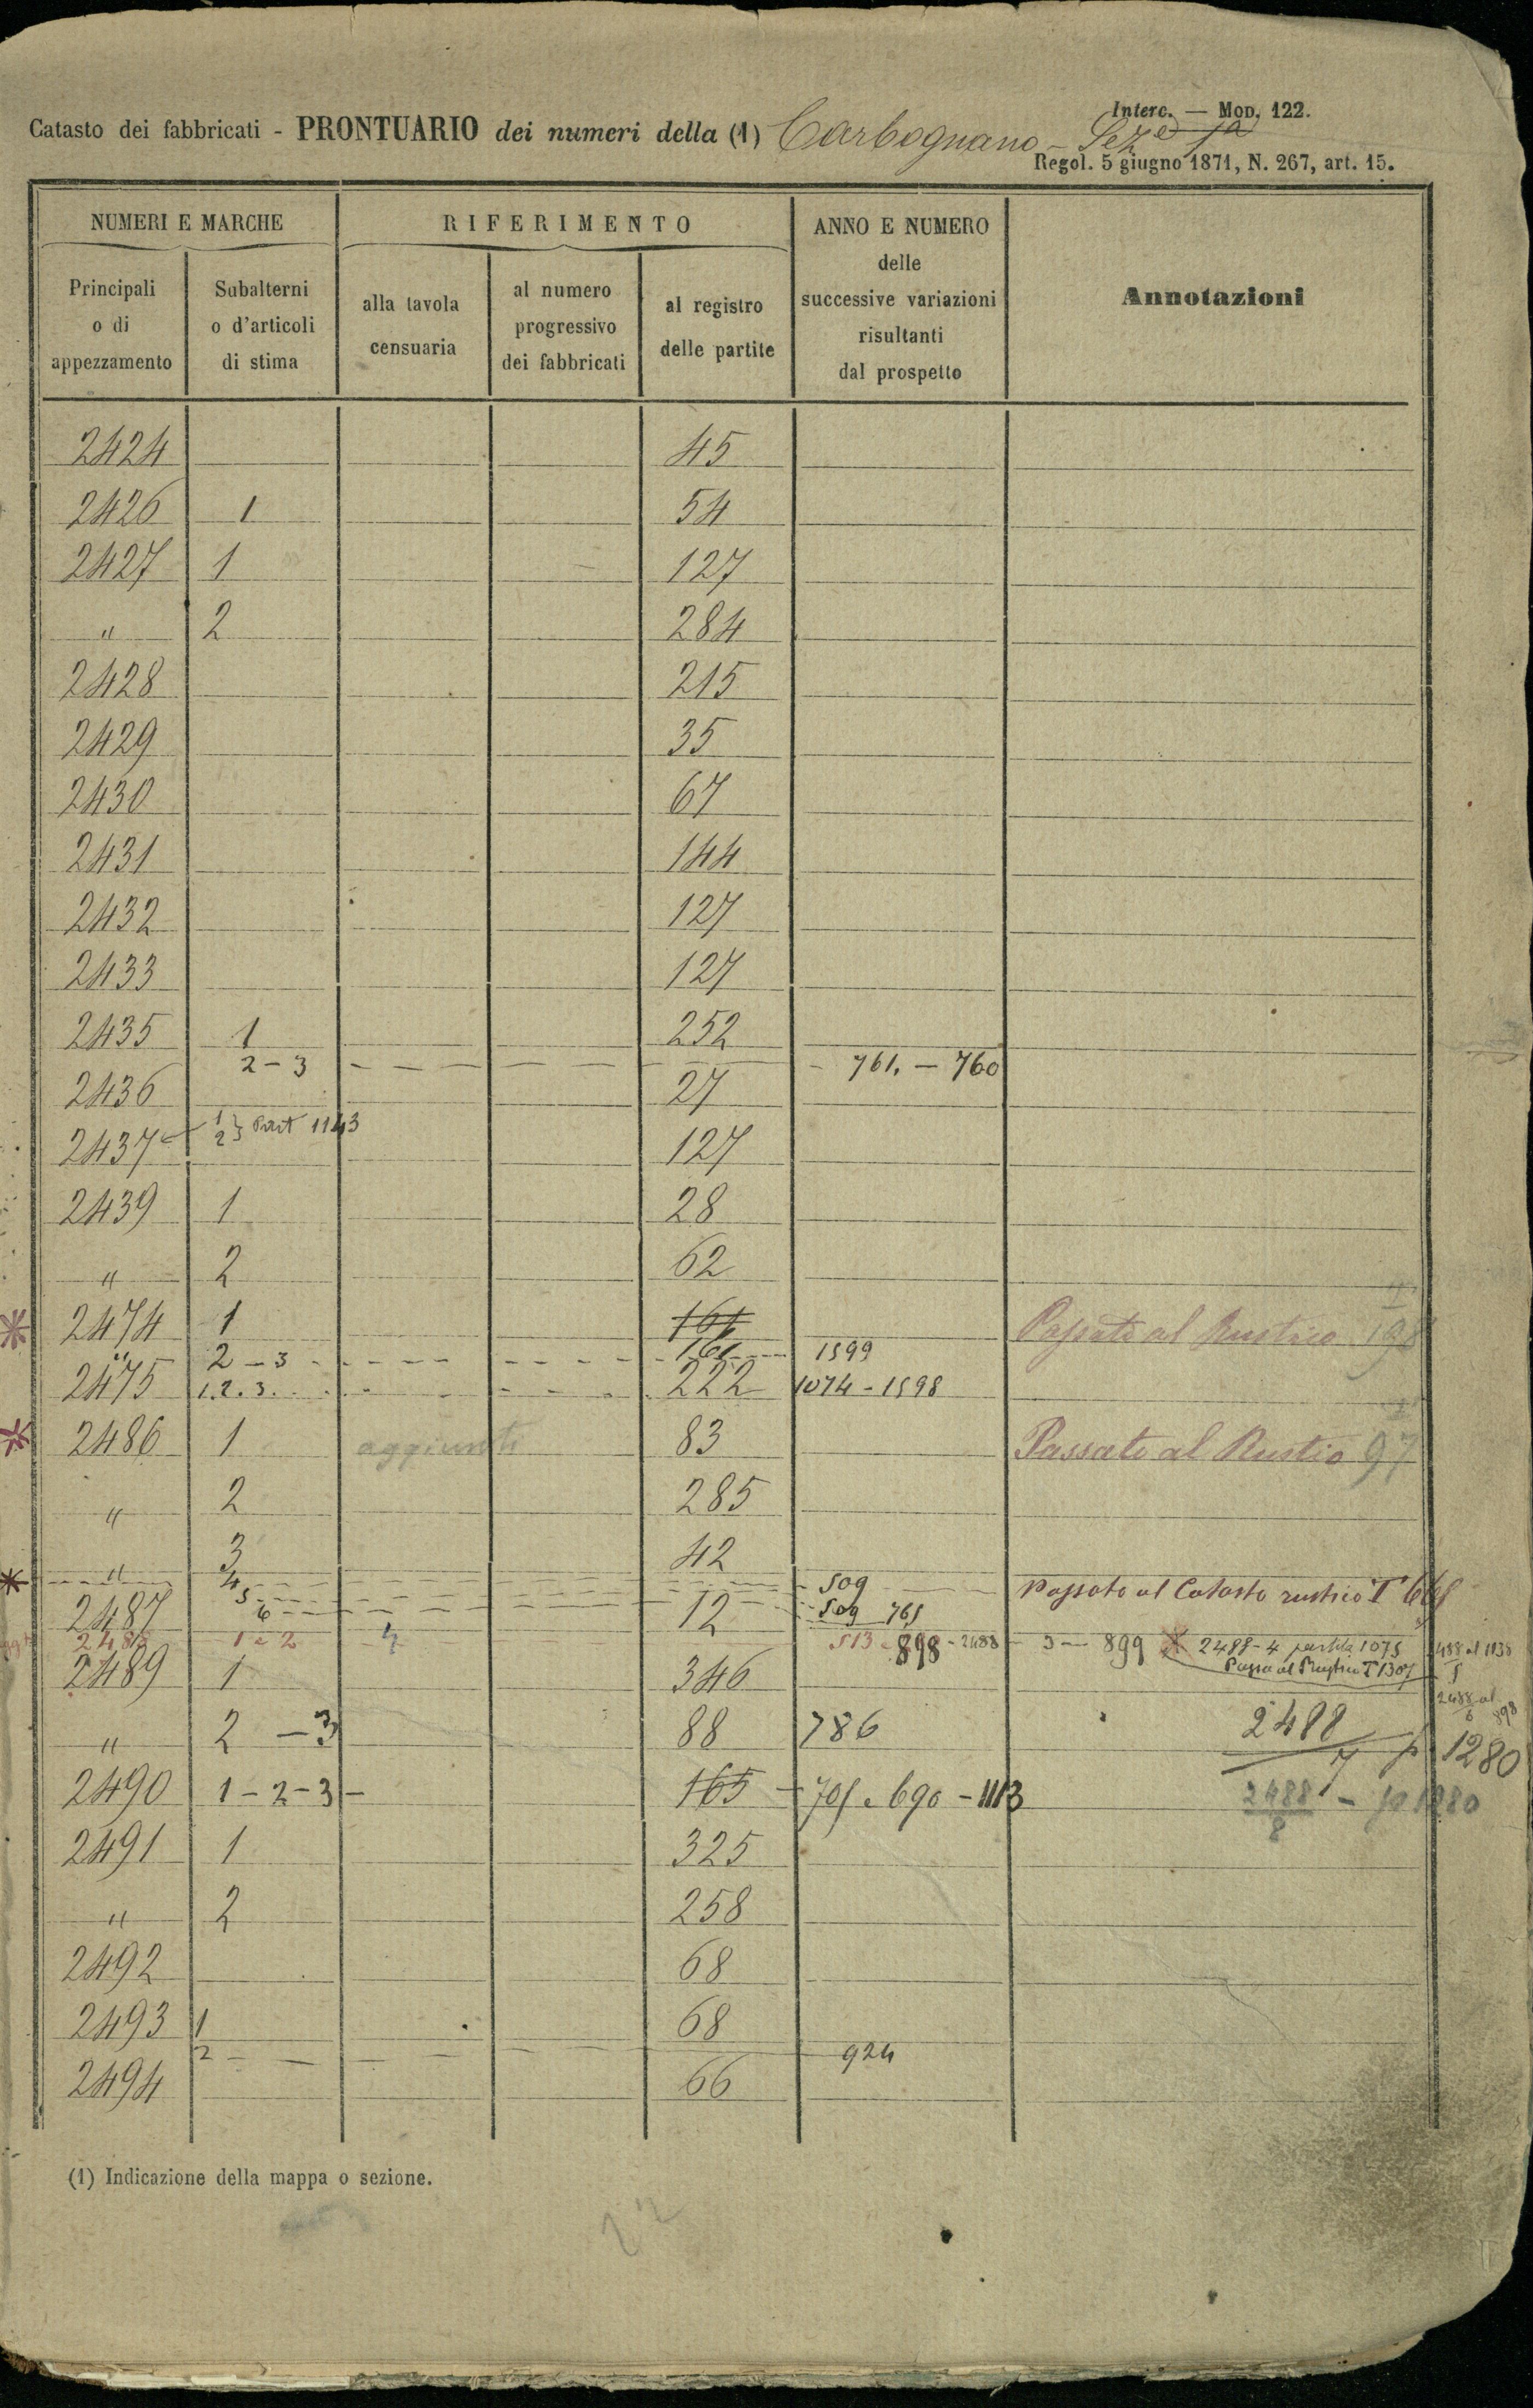 Interc. — Mod. 122.
Catasto dei fabbricati - PRONTUARIO dei numeri della (1) Carbognano - Sez.e 1a
Regol. 5 giugno 1871, N. 267, art. 15.
NUMERI E MARCHE
Principali o di appezzamento
Subalterni o d'articoli di stima
RIFERIMENTO
alla tavola censuaria
al numero progressivo dei fabbricati
al registro delle partite
ANNO E NUMERO delle successive variazioni risultanti dal prospetto
Annotazioni
2424 45
2426 1 54
2427 1 127
" 2 284
2428 215
2429 35
2430 67
2431 144
2432 127
2433 127
2435 1 252
2-3 - 761. - 760
2436 27
1 2 } Part 1143
2437 127
2439 1 28
" 2 62
2474 1 161 Passato al Rustico 198
" 2-3 161 1599
2475 1.2.3. 222 1074-1598
2486 1 aggiunti 83 Passato al Rustio 97
" 2 285
" 3 42
4 509 Passato al Catasto rustico T
5
2487 6 12 509 765
2488 1 e 2 513 - 898 - 2488 - 3 - 899 2488-4 partita 1075
Passa al Rustico T 1307
2489 1 346
2488 al 898
6
" 2 - 3 88 786 2488 p 1280
7
2490 1-2-3- 165 - 701 e 690 - 1113 2488 - p 1280
8
2491 1 325
" 2 258
2492 68
2493 1 68
2 924
2494 66
(1) Indicazione della mappa o sezione.
22